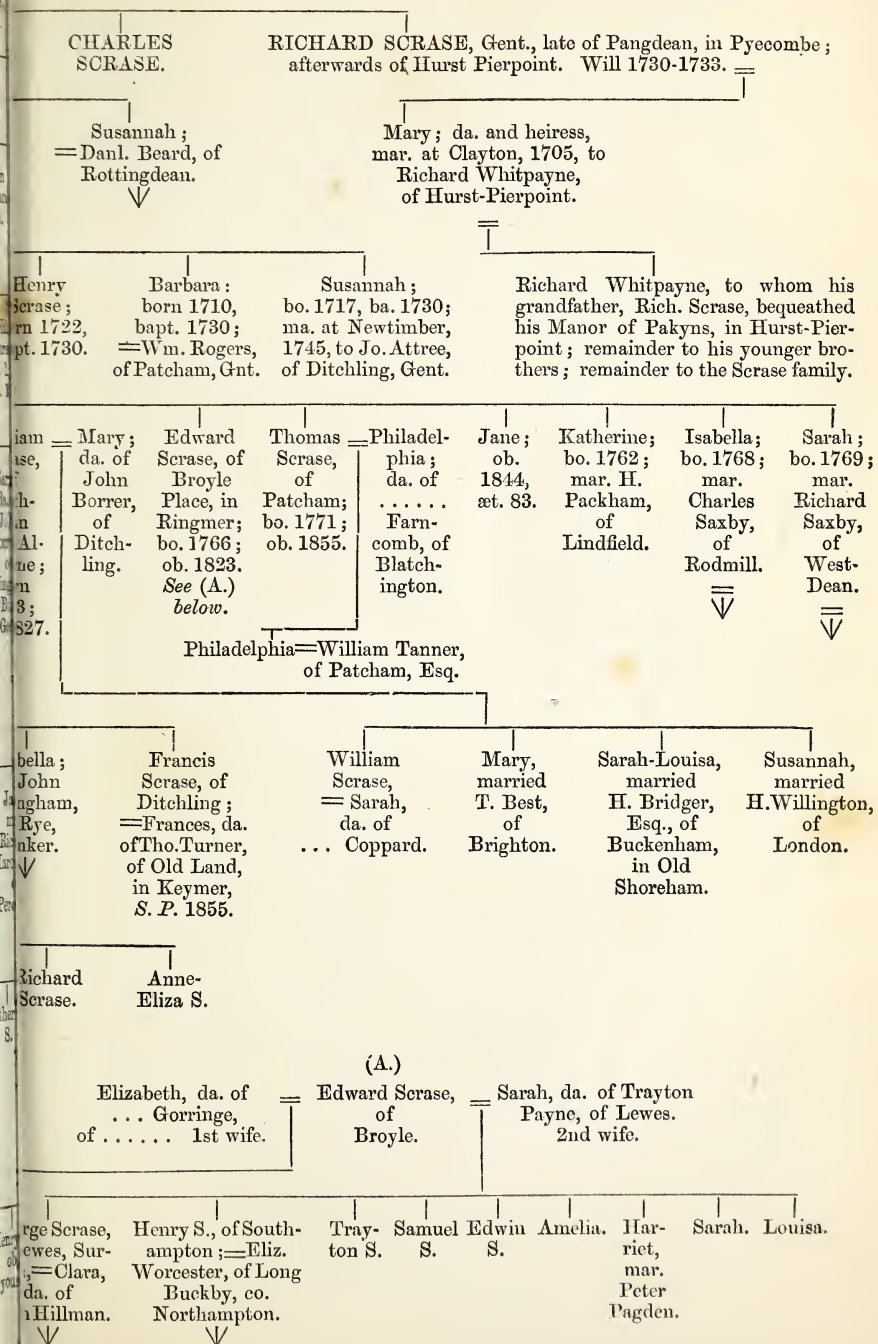 CHARLES
SCRASE.
RICHARD SCRASE, Gent., late of Pangdean, in Pyecombe;
afterwards of Hurst Pierpoint. Will 1730-1733. =
Susannah;
=Danl. Beard, of
Rottingdean.
Mary; da. and heiress,
mar. at Clayton, 1705, to
Richard Whitpayne,
of Hurst-Pierpoint.
=
Henry
Scrase;
rn 1722,
pt. 1730.
Barbara:
born 1710,
bapt. 1730;
=Wm. Rogers,
of Patcham, Gnt.
Susannah;
bo. 1717, ba. 1730;
ma. at Newtimber,
1745, to Jo. Attree,
of Ditchling, Gent.
Richard Whitpayne, to whom his
grandfather, Rich. Scrase, bequeathed
his Manor of Pakyns, in Hurst-Pier-
point; remainder to his younger bro-
thers; remainder to the Scrase family.
iam =
ase,
h-
n
Al-
ne;
n
3;
827.
Mary;
da. of
John
Borrer,
of
Ditch-
ling.
Edward
Scrase, of
Broyle
Place, in
Ringmer;
bo. 1766;
ob. 1823.
See (A.)
below.
Thomas =
Scrase,
of
Patcham;
bo. 1771;
ob. 1855.
Philadel-
phia;
da. of
......
Farn-
comb, of
Blatch-
ington.
Jane;
ob.
1844,
æt. 83.
Katherine;
bo. 1762;
mar. H.
Packham,
of
Lindfield.
Isabella;
bo. 1768;
mar.
Charles
Saxby,
of
Rodmill.
=
Sarah;
bo. 1769;
mar.
Richard
Saxby,
of
West-
Dean.
=
Philadelphia=William Tanner,
of Patcham, Esq.
bella;
John
ngham,
Rye,
nker.
Francis
Scrase, of
Ditchling;
=Frances, da.
of Tho. Turner,
of Old Land,
in Keymer,
S. P. 1855.
William
Scrase,
= Sarah,
da. of
... Coppard.
Mary,
married
T. Best,
of
Brighton.
Sarah-Louisa,
married
H. Bridger,
Esq., of
Buckenham,
in Old
Shoreham.
Susannah,
married
H. Willington,
of
London.
Richard
Scrase.
Anne-
Eliza S.
(A.)
Elizabeth, da. of
... Gorringe,
of ...... 1st wife.
= Edward Scrase, =
of
Broyle.
Sarah, da. of Trayton
Payne, of Lewes.
2nd wife.
rge Scrase,
ewes, Sur-
,=Clara,
da. of
n Hillman.
Henry S., of South-
ampton;=Eliz.
Worcester, of Long
Buckby, co.
Northampton.
Tray-
ton S.
Samuel
S.
Edwin
S.
Amelia.
Har-
riet,
mar.
Peter
Pagden.
Sarah.
Louisa.